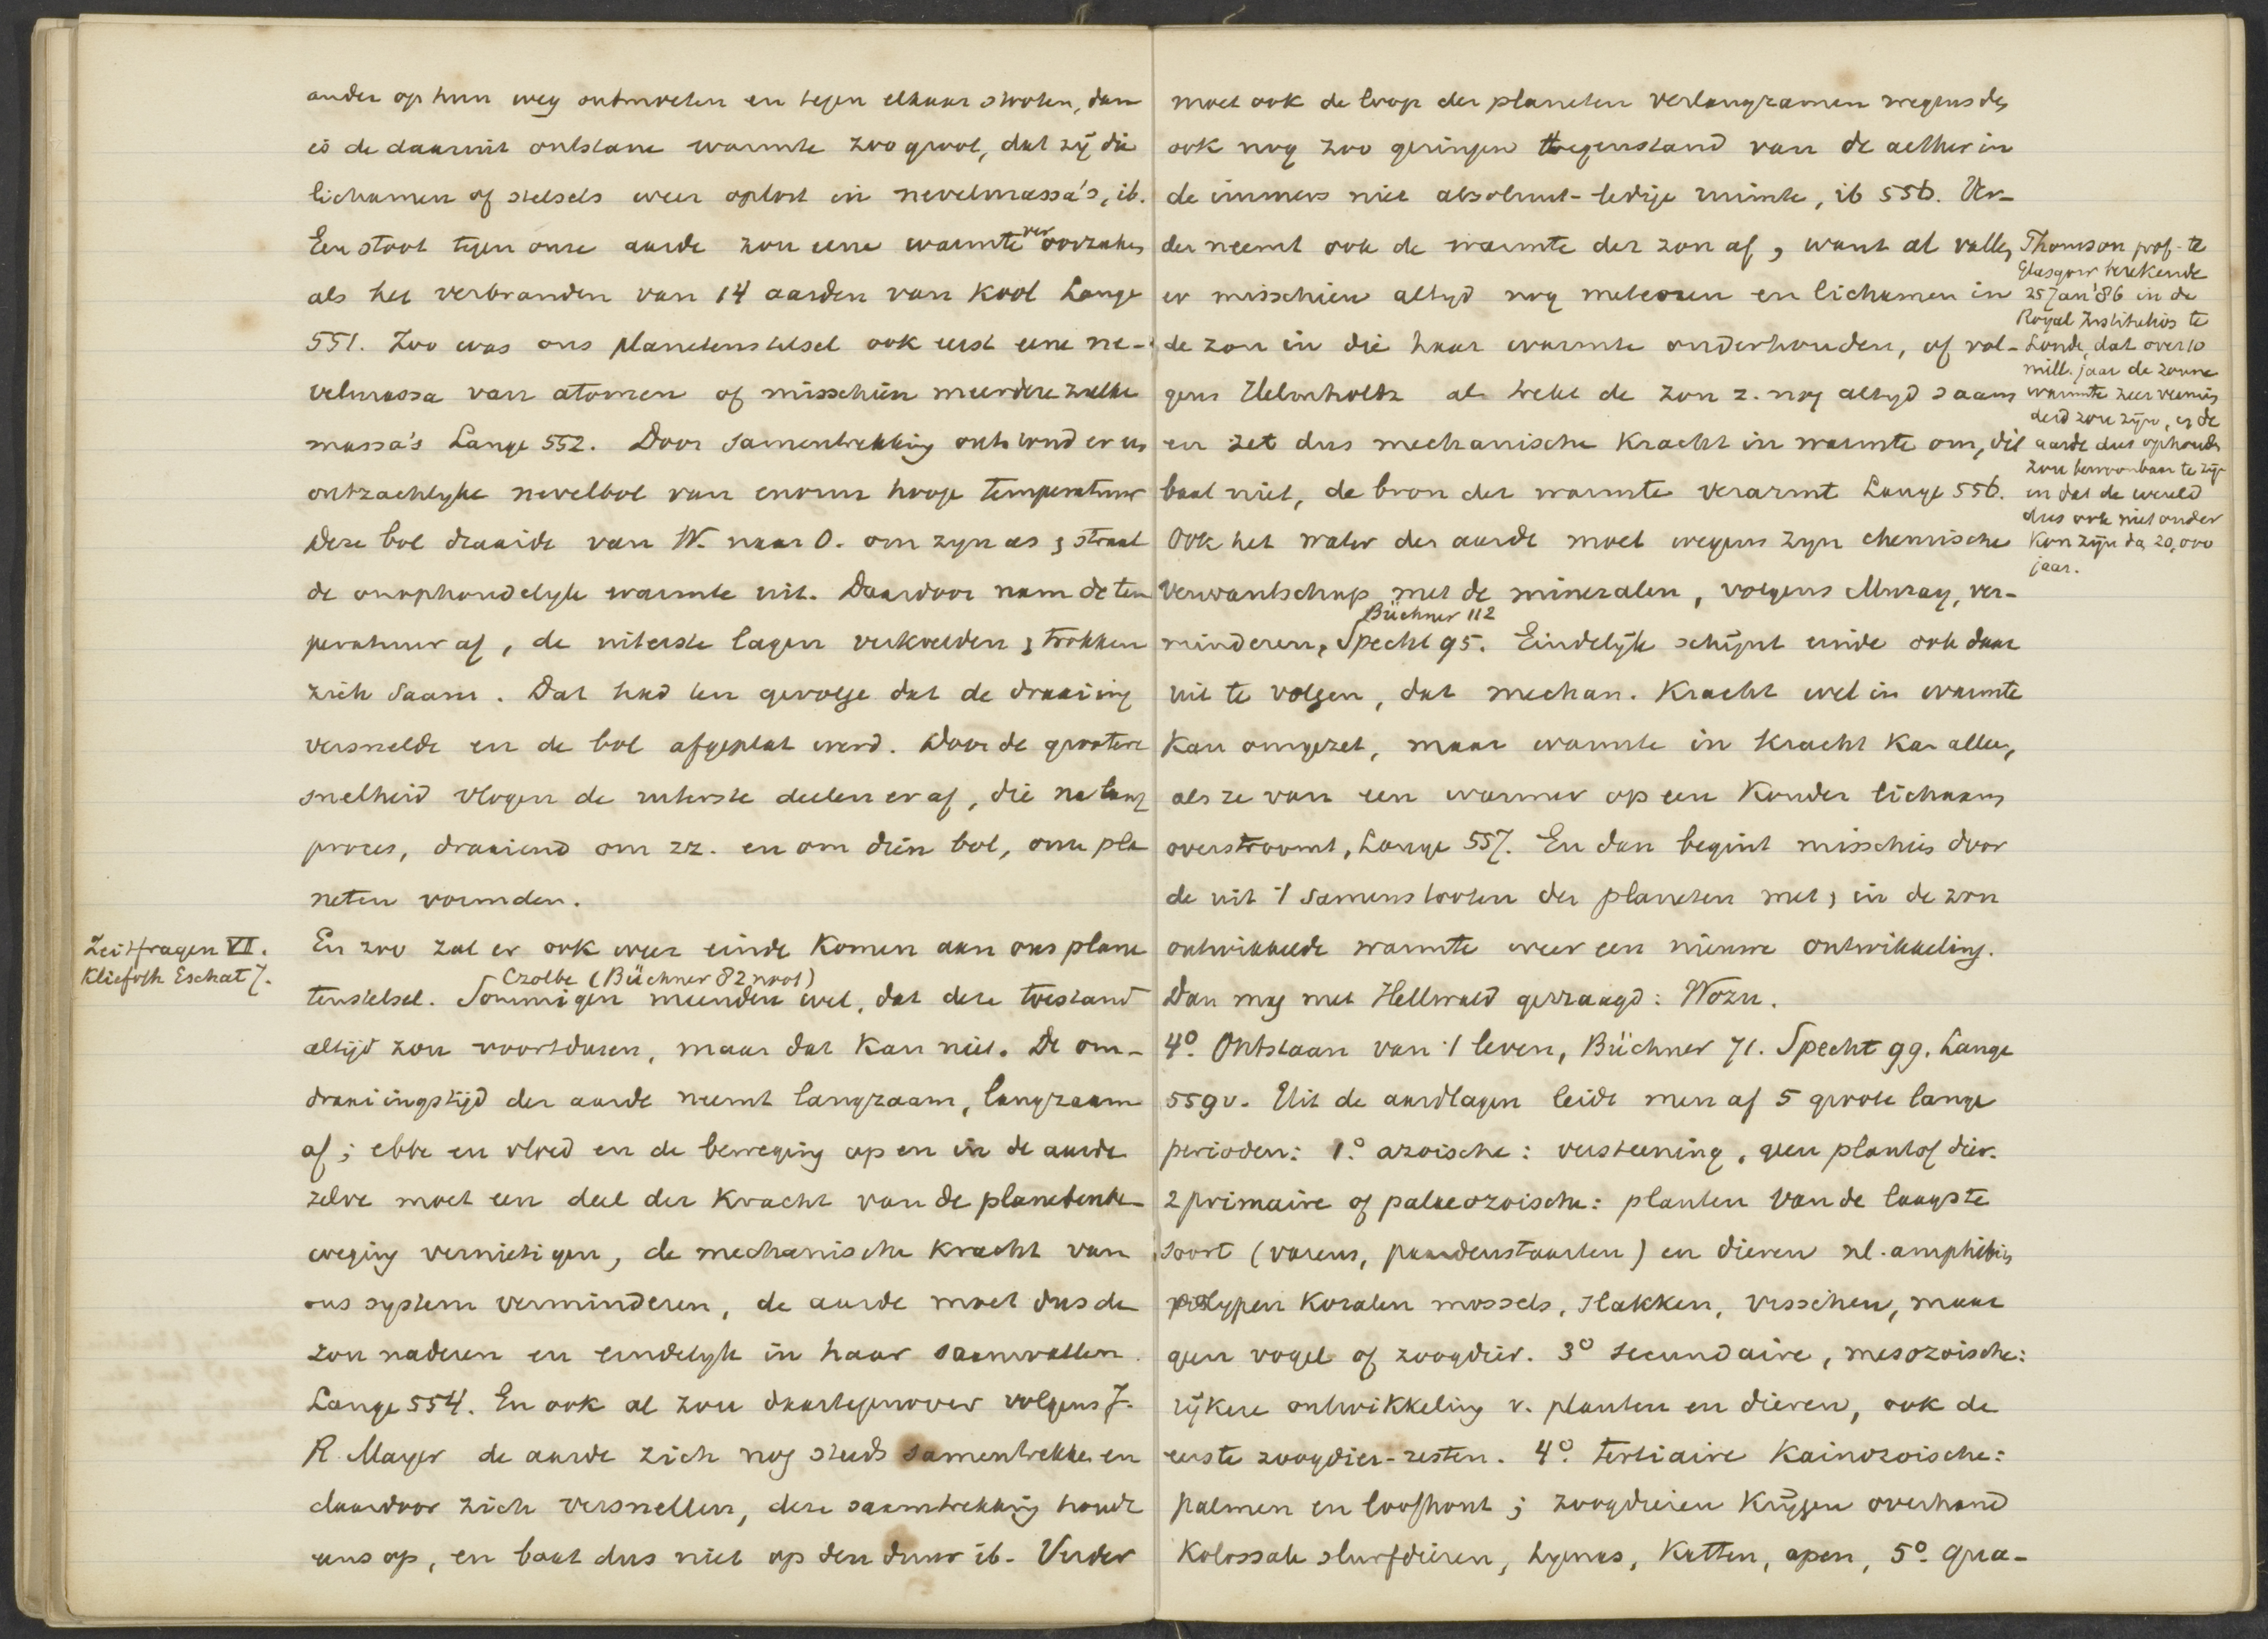 ander op hun weg ontmoeten en tegen elkaar stooten, dan
is de daaruit ontstane warmte zoo groot, dat zij die
lichamen of stelsels weer oplost in nevelmassa's, ib.
Een stoot tegen onze aarde zou eene warmte veroorzaken
als het verbranden van 14 aarden van kool Lange
551. Zoo was ons planetenstelsel ook eerst eene ne-
velmassa van atomen of misschien meerdere zulke
massa's Lange 552. Door samentrekking ontstond er een
ontzachlyke nevelbol van enorm hooge temperatuur
Deze bol draaide van W. naar O. om zyn as & straal
de onophoudelyk warmte uit. Daardoor nam de tem
peratuur af, de uiterste lagen verkoelden & trokken
zich saam. Dat had ten gevolge dat de draaiing
versnelde en de bol afgeplat werd. Door de grootere
snelheid vlogen de uiterste deelen er af, die na lang
proces, draaiend om zz. en om dien bol, onze pla
neten vormden.
Zeitfragen VI.
Kliefoth Eschat 7.
En zoo zal er ook weer einde komen aan ons plane
Czolbe (Büchner 82 noot)
tenstelsel. Sommigen meenden wel, dat deze toestand
altijd zou voortduren, maar dat kan niet. De om-
draaiingstijd der aarde neemt langzaam, langzaam
af; ebbe en vloed en de beweging op en in de aarde
zelve moet een deel der kracht van de planetenbe-
weging vernietigen, de mechanische kracht van
ons systeem verminderen, de aarde moet dus de
zon naderen en eindelyk in haar saamvallen.
Lange 554. En ook al zou daartegenover volgens J.
R. Mayer de aarde zich nog steeds samentrekken en
daardoor zich versnellen, deze saamtrekking houdt
eens op, en baat dus niet op den duur ib. Verder
moet ook de loop der planeten verlangzamen wegens den
ook nog zoo geringen tegenstand van de aether in
de immers niet absoluut-ledige ruimte, ib 556. Ver-
der neemt ook de warmte der zon af, want al vallen
er misschien altyd nog meteoren en lichamen in
de zon in die haar warmte onderhouden, of vol-
gens Helmholtz al trekt de zon z. nog altyd saam
en zet dus mechanische kracht in warmte om, dit
baat niet, de bron der warmte verarmt Lange 556.
Ook het water der aarde moet wegens zyn chemische
verwantschap met de mineralen, volgens Muray, ver-
Büchner 112
minderen, Specht 95. Eindelijk schijnt einde ook daar
uit te volgen, dat mechan. kracht wel in warmte
kan omgezet, maar warmte in kracht kan alleen,
als ze van een warmer op een kouder lichaam
overstroomt, Lange 557. En dan begint misschien door
de uit 't samenstooten der planeten met & in de zon
ontwikkelde warmte weer een nieuwe ontwikkeling.
Dan mag met Hellwald gevraagd: Wozu.
4º. Ontstaan van 't leven, Büchner 71. Specht 99. Lange
559v. Uit de aardlagen leidt men af 5 groote lange
perioden: 1.º azoische: versteening, geen plant of dier.
2 primaire of palaeozoische: planten van de laagste
soort (varens, paardenstaarten) en dieren nl. amphibien
polypen koralen mossels, slakken, visschen, maar
geen vogel of zoogdier. 3º secundaire, mesozoische:
rijkere ontwikkeling v. planten en dieren, ook de
eerste zoogdier-resten. 4º. tertiaire kainozoische:
palmen en loofhout; zoogdieren krijgen overhand
kolossale slurfdieren, hyenas, katten, apen, 5º. qua-
Thomson prof. te
Glasgow berekende
25 Jan '86 in de
Royal Institution te
Londen, dat over 10
mill. jaar de zonne
warmte zeer vermin
derd zou zijn, en de
aarde dus ophouden
zou bewoonbaar te zijn
en dat de wereld
dus ook niet ouder
kon zijn dan 20,000
jaar.